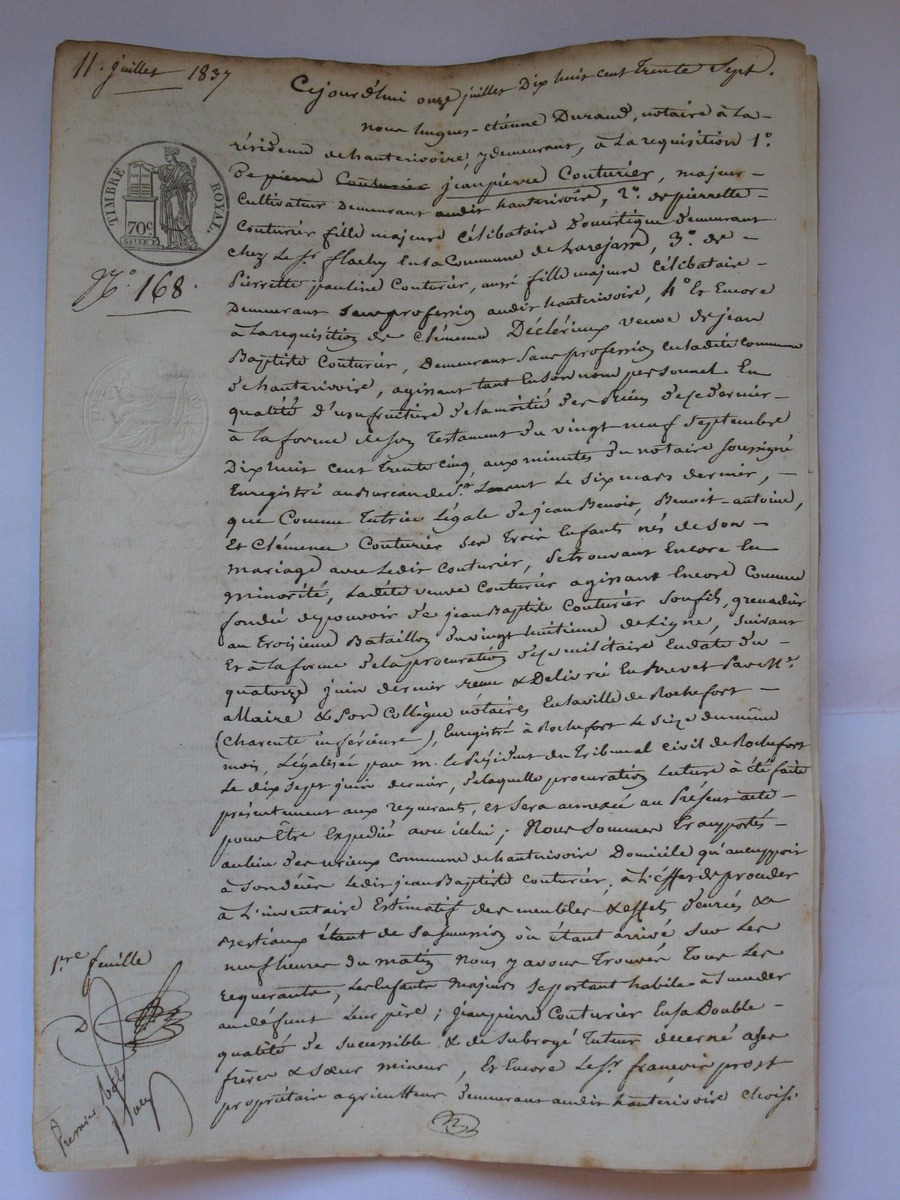 11. juillet 1837
Cejourd'hui onze juillet Dix huit cent trente Sept.
nous hugues-étienne Durand, notaire à la
résidence de hauterivoire, y demeurant, à la requisition 1°.
De pierre Couturier jeanpierre Couturier, majeur
Cultivateur demeurant audit hauterivoire, 2°. de pierrette
Couturier fille majeure Célibataire Domestique demeurant
chez Le Sr. flachy en sa Commune de Larajasse, 3°. de
Pierrette pauline Couturier, aussi fille majeure Célibataire
Demeurant Sans profession audit hauterivoire, 4° Et Encore
à La requisition de Clémence Déclérieux veuve de jean
Baptiste Couturier, demeurant Sans profession en ladite commune
de hauterivoire, agissant tant En son nom personnel En
qualité d'usufruitière de la moitié des Biens de ce dernier
à la forme de son Testament du vingt neuf Septembre
Dix huit cent trente cinq, aux minutes du notaire soussigné
Enregistré au Bureau de St. Laurent Le six mars dernier,
que Comme Tutrice Légale de jean Benoit, Benoit-antoine,
Et Clémence Couturier Ses trois Enfants nés de son
mariage avec Ledit Couturier, Se trouvant Encore En
minorité, Ladite veuve Couturier agissant Encore Comme
fondée de pouvoir de jean Baptiste Couturier Son fils, grenadier
au troisième Bataillon du vingt huitième de Ligne, suivant
Et à la forme de la procuration de ce militaire En date du
quatorze juin dernier reçue & Delivrée En Brevet Par Me.
allaire & Son Collègue notaires En la ville de Rochefort
(Charente inférieure), Enregistré à Rochefort Le Seize du même
mois, Légalisée par m. le Président du Tribunal civil de Rochefort
Le dix sept juin dernier, de laquelle procuration Lecture à été faite
présentement aux requérants, et Sera annexée au Présent acte
pour Être Expédiée avec icelui; Nous Sommes Transportés
au lieu des Commune de hauterivoire Domicile qu'avait
à Son décès Ledit jean Baptiste Couturier, à L'effet de proceder
à L'inventaire Estimatif des meubles & effets denrées &
Bestiaux étant de Sa Succession où étant arrivé Sur Les
neuf heures du matin nous y avons Trouvés Tous Les
requérants, Les Enfants majeurs Se portant habile à Succeder
au défunt Leur père; jeanpierre Couturier En sa Double
qualité de Successible & de Subrogé Tuteur décerné à Ses
frères & Sœur mineur, Et Encore Le Sr. françois prost
propriétaire agriculteur demeurant audit hauterivoire choisi
TIMBRE ROYAL.
70c.
N°. 168.
1.re feuille
Premier